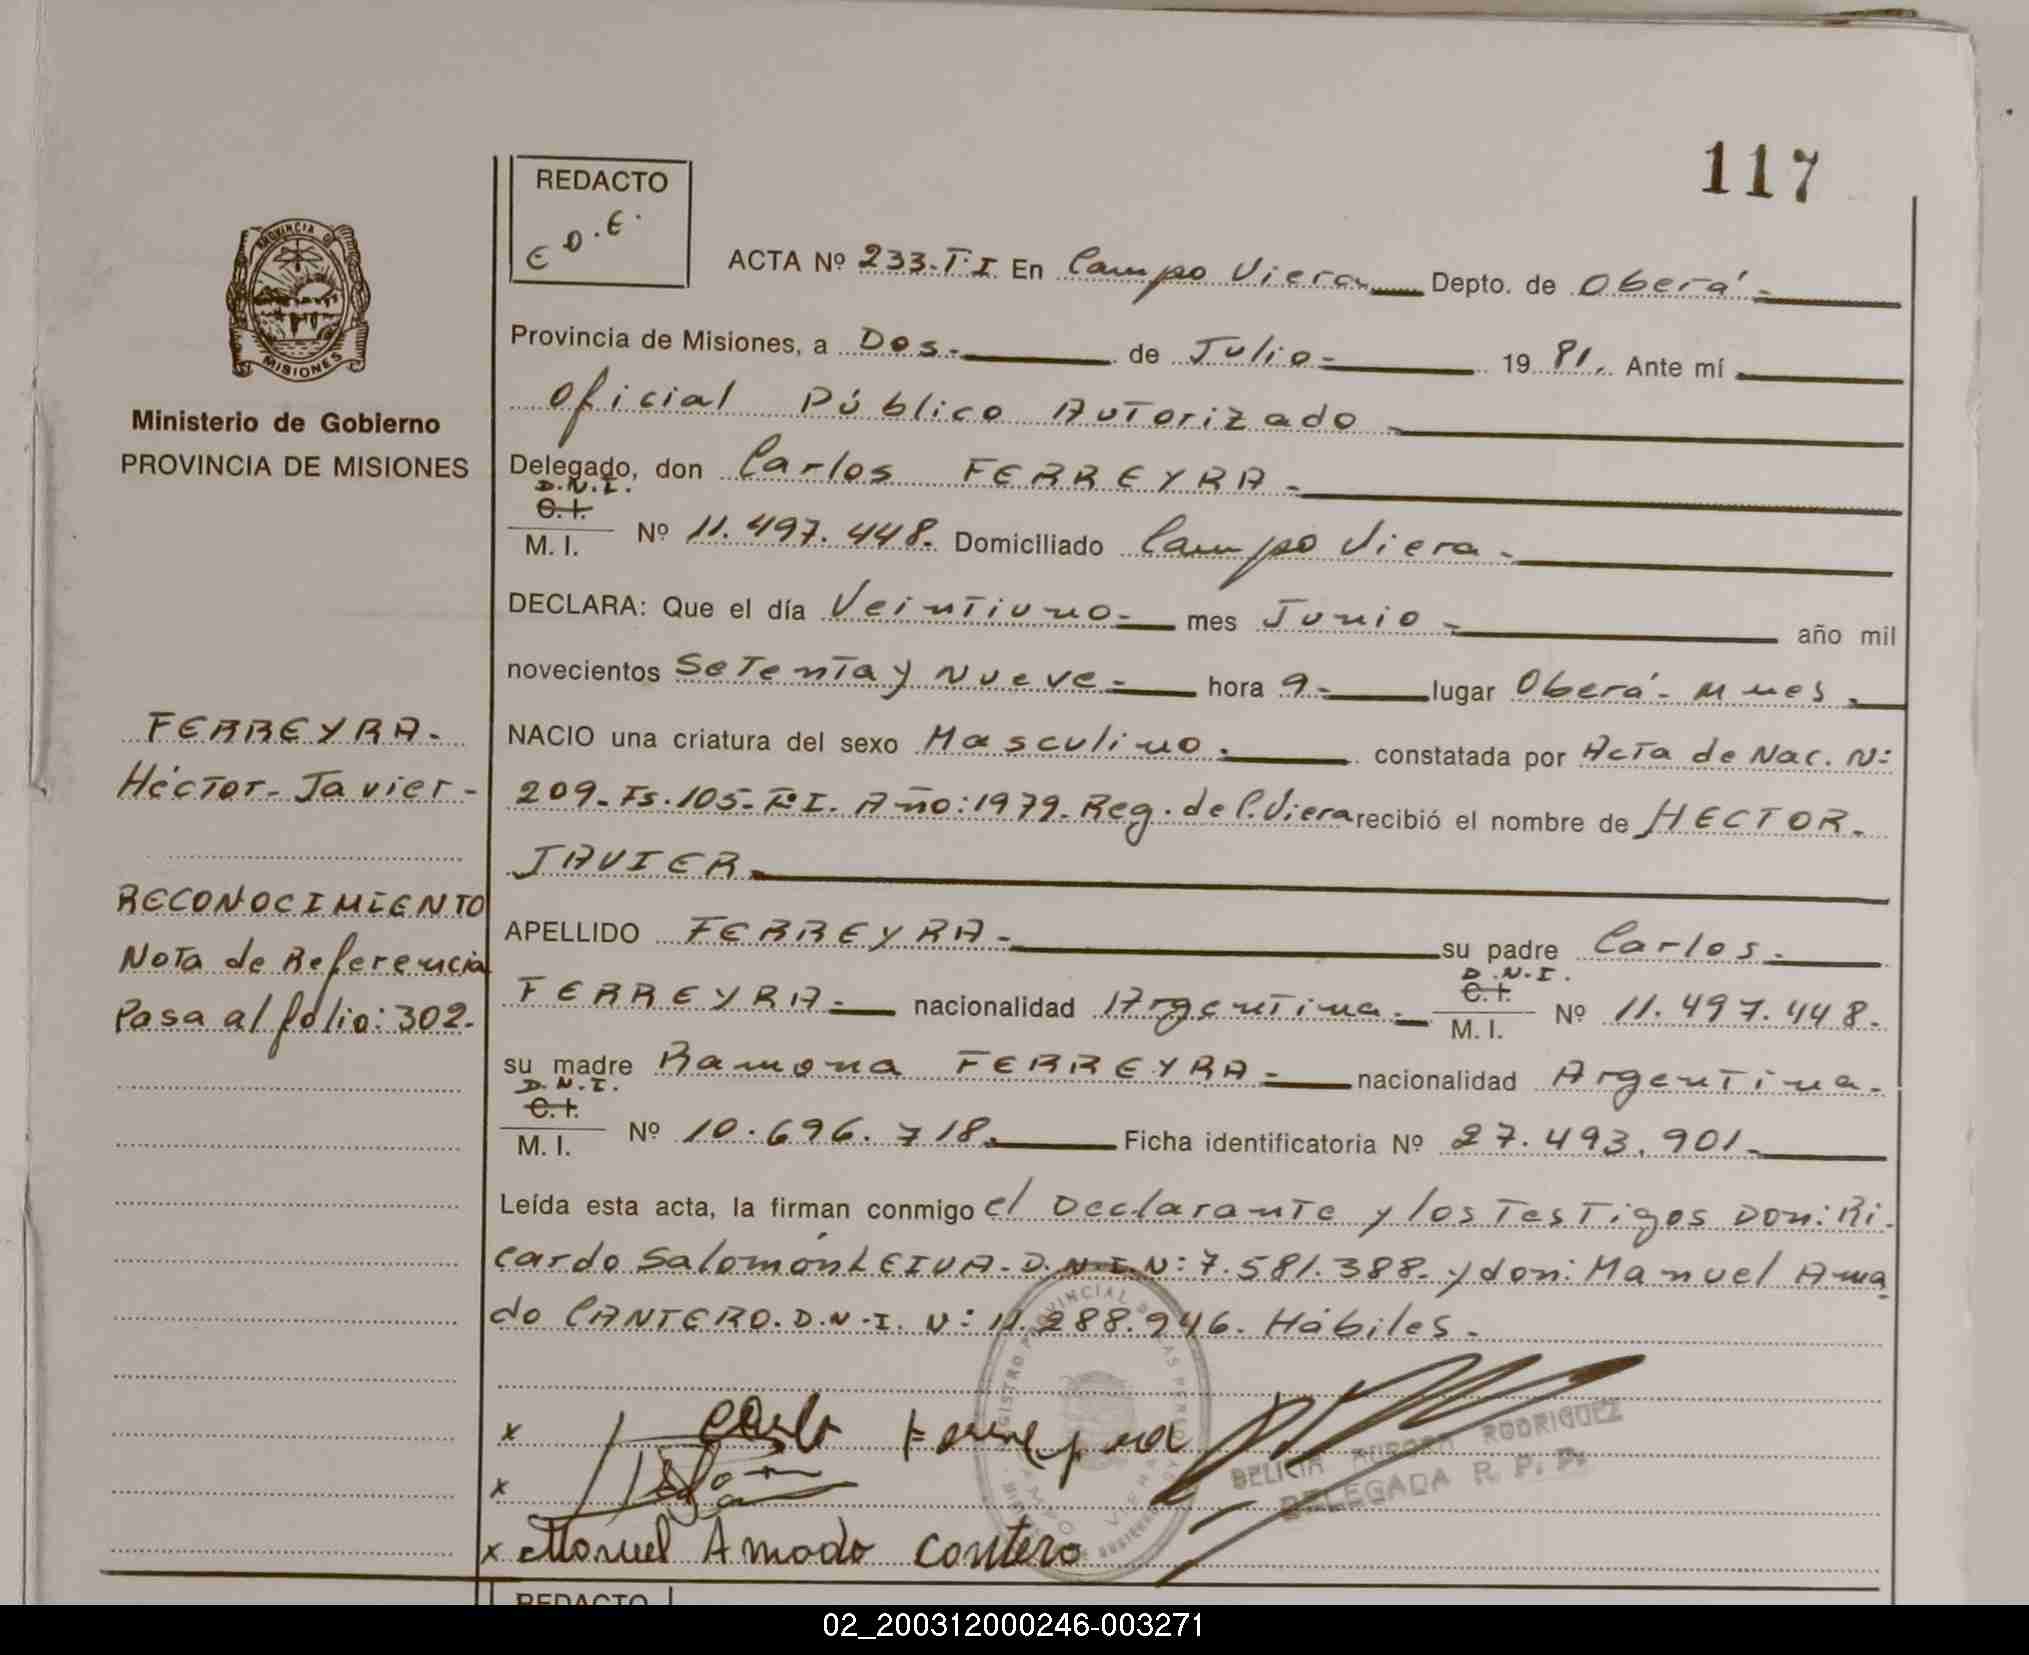 117
REDACTO
E D. E.
PROVINCIA DE
MISIONES
Ministerio de Gobierno
PROVINCIA DE MISIONES
ACTA Nº 233-T.I. En Campo Viera Depto. de Oberá-
Provincia de Misiones, a Dos- de Julio- 1981. Ante mí
Oficial Público Autorizado
Delegado, don Carlos FERREYRA-
D.N.I.
C.I.
M. I. Nº 11.497.448. Domiciliado Campo Viera-
DECLARA: Que el día Veintiuno- mes Junio- año mil
novecientos Setenta y Nueve- hora 9- lugar Oberá- Mnes.
NACIO una criatura del sexo Masculino. constatada por Acta de Nac. N:
209-Fs.105-Tº I. Año:1979. Reg. de C. Viera recibió el nombre de HECTOR-
JAVIER
APELLIDO FERREYRA- su padre Carlos-
FERREYRA- nacionalidad Argentina-
D.N.I.
C.I.
M. I. Nº 11.497.448.
su madre Ramona FERREYRA- nacionalidad Argentina-
D.N.I.
C.I.
M. I. Nº 10.696.718. Ficha identificatoria Nº 27.493.901-
Leída esta acta, la firman conmigo el Declarante y los Testigos Don: Ri-
cardo Salomón LEIVA- D.N.I. N: 7.581.388. y don: Manuel Ama
do CANTERO. D.N.I. N: 11.288.946. Hábiles.
FERREYRA-
Héctor- Javier-
RECONOCIMIENTO
Nota de Referencia
Pasa al folio: 302.
x Carlo Ferreyra
x
x Manuel Amado Cantero
CAMPO VIERA
AURORA RODRIGUEZ
DELEGADA R. P. P.
REDACTO
02_200312000246-003271